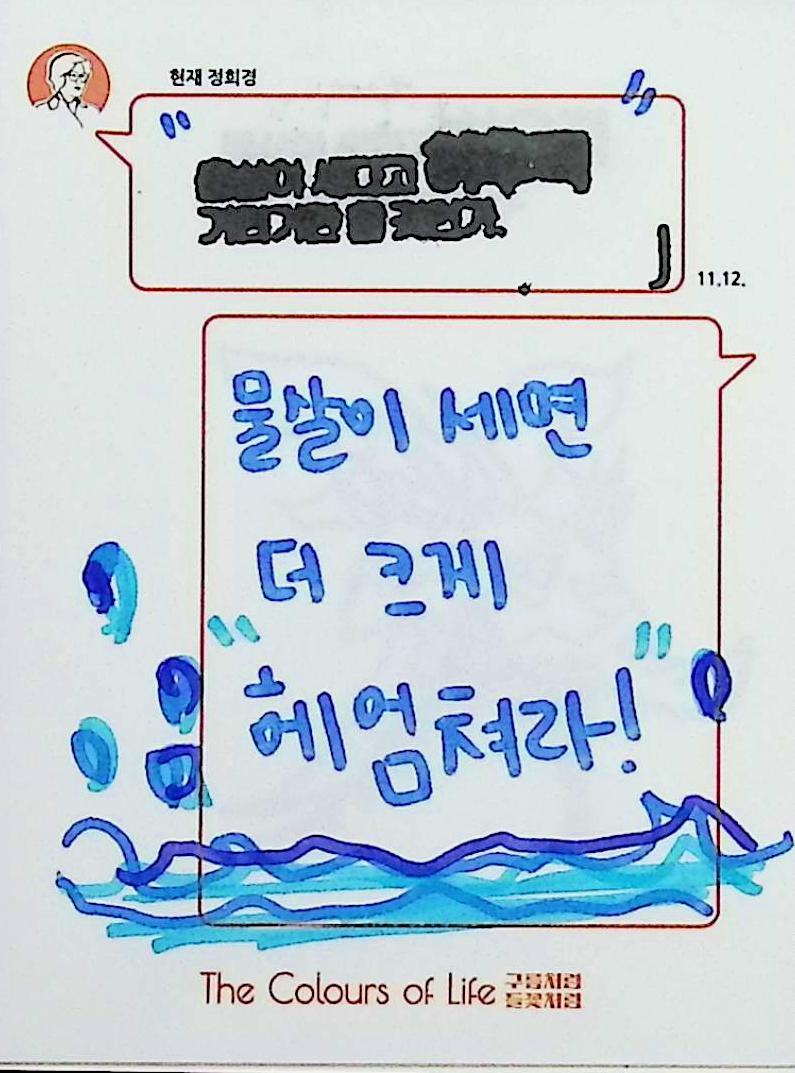 현재 정희경
11.12.
물살이 세면
더 크게
"헤엄쳐라!"
The Colours of Life 구름처럼
들꽃처럼